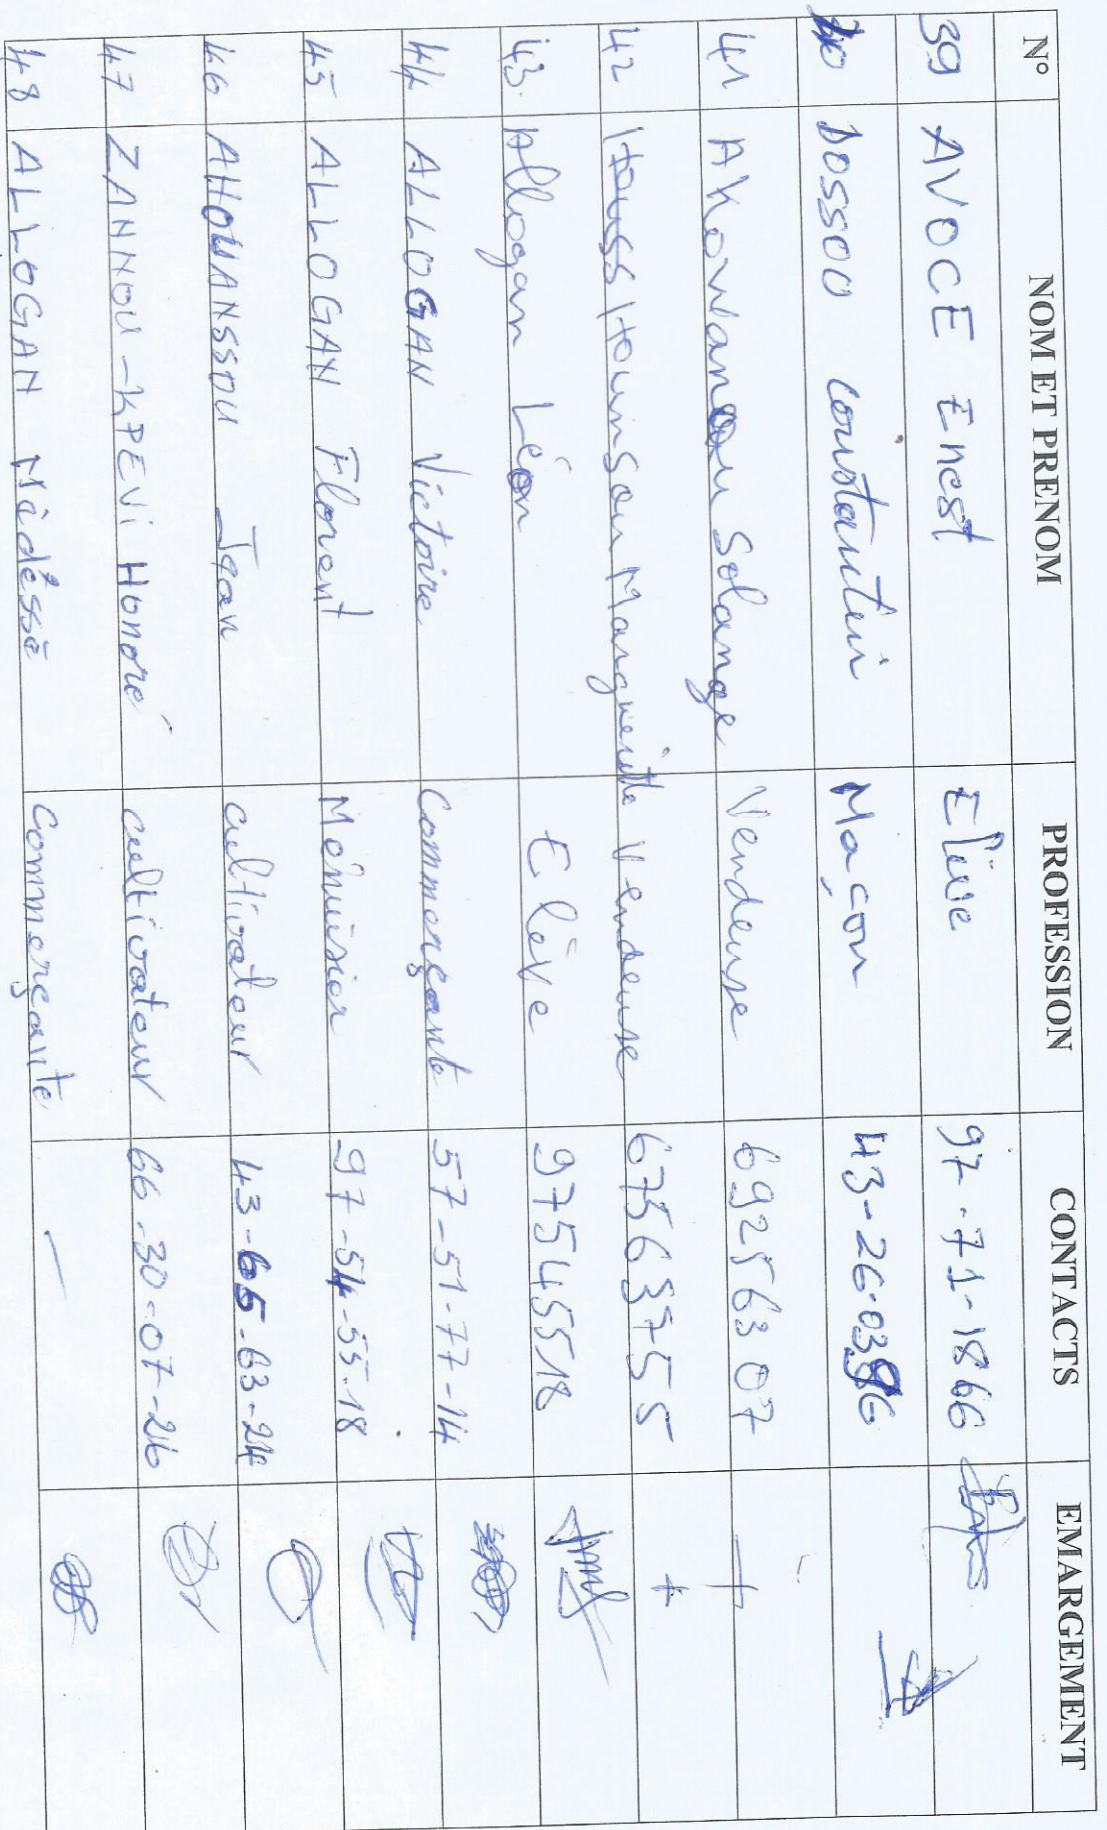 N° NOM ET PRENOM PROFESSION CONTACTS EMARGEMENT
39 AVOCE Enest Elève 97-71-1866
40 DOSSOU Constantin Maçon 43-26-03
41 Solange Vendeuse 69256307
42 Marguerite Vendeuse 67563755
43. Allogan Léon Elève 97545518
44 ALLOGAN Victoire Commerçante 57-51-77-14
45 ALLOGAN Florent Ménuisier 97-54-55-18
46 AHOUANSSOU Jean cultivateur 43-65-63-24
47 ZANNOU-KPEVI Honoré cultivateur 66-30-07-26
48 ALLOGAN Commerçante —